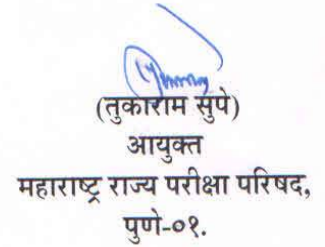 (तुकाराम सुपे)
आयुक्त
महाराष्ट्र राज्य परीक्षा परिषद,
पुणे-०१.